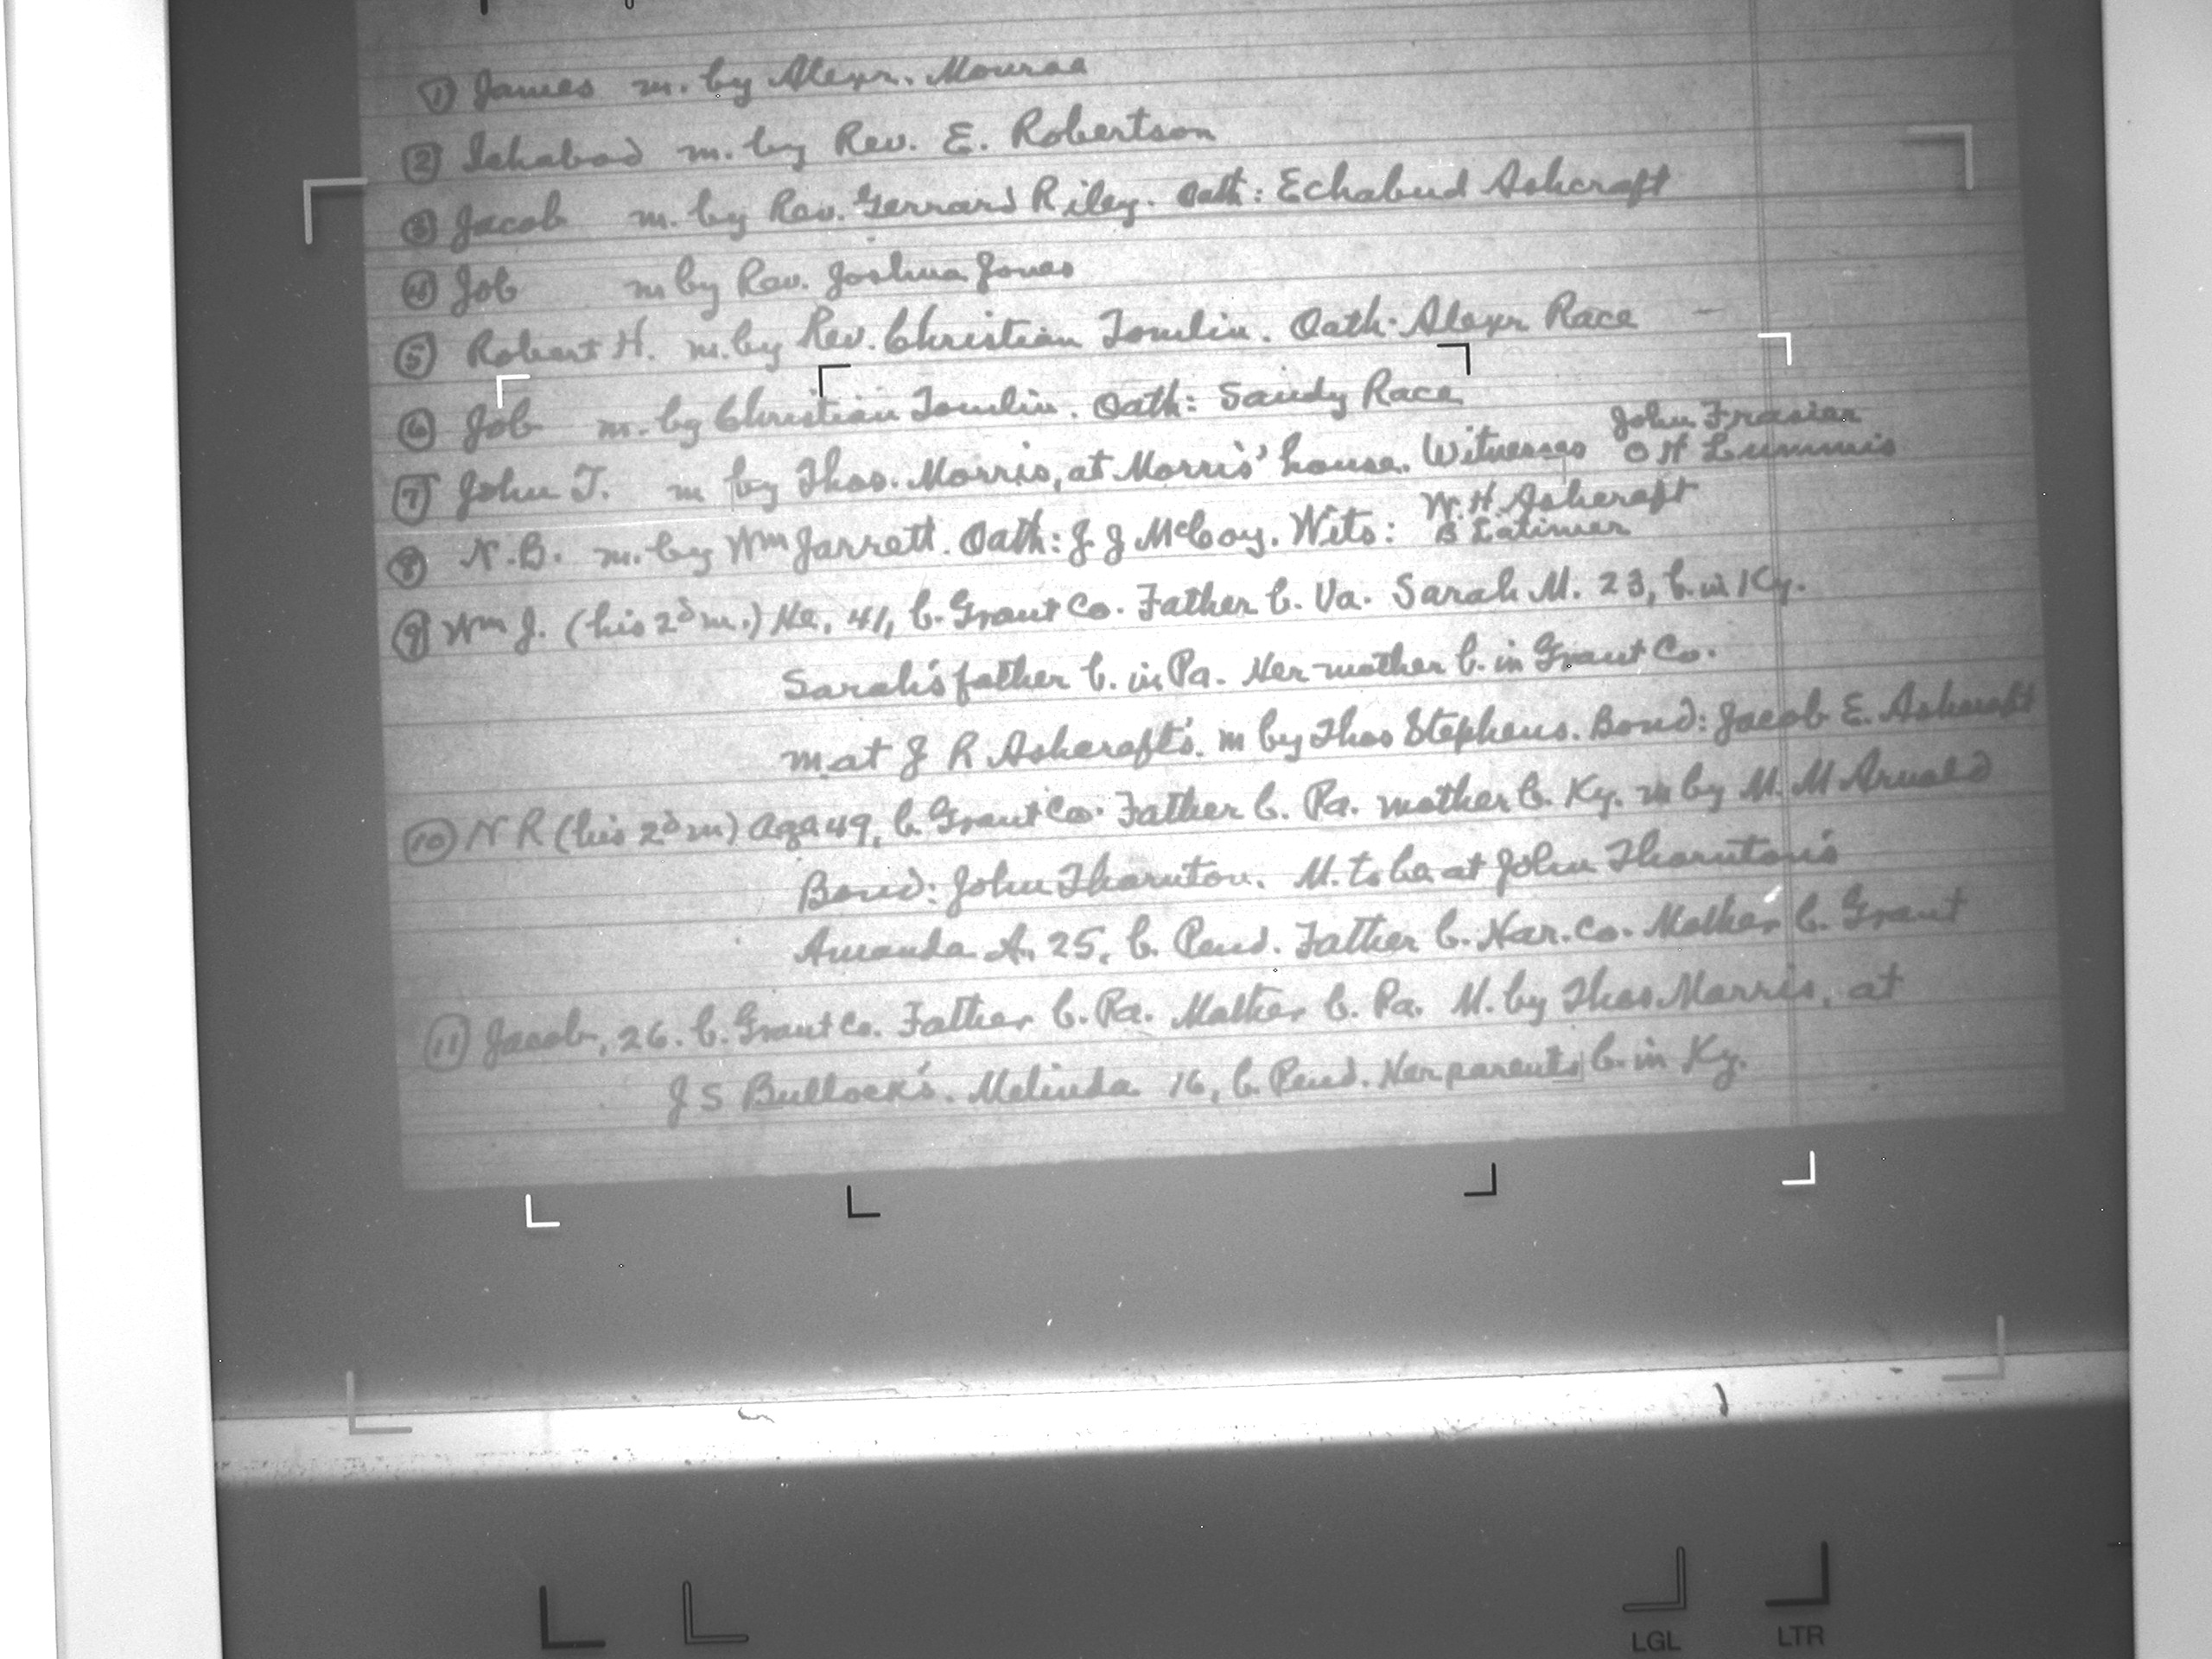 ① James m. by Alexr. Monroe
② Ichabod m. by Rev. E. Robertson
③ Jacob m. by Rev. Gerrard Riley. Oath: Echabud Ashcraft
④ Job m by Rev. Joshua Jones
⑤ Robert H. m. by Rev. Christian Tomlin. Oath: Alexr Race —
⑥ Job m. by Christian Tomlin. Oath: Sandy Race
⑦ John T. m by Thos. Morris, at Morris' house. Witnesses John Frasier
O H Lummis
⑧ N.B. m. by Wm Jarrett. Oath: J. J McCoy. Wits: W. H. Ashcraft
B Latimer
⑨ Wm J. (his 2d m.) He, 41, b. Grant Co. Father b. Va. Sarah M. 23, b. in Ky.
Sarah's father b. in Pa. Her mother b. in Grant Co.
m. at J R Ashcraft's. m by Thos Stephens. Bond: Jacob E. Ashcraft
⑩ N R (his 2d m) Age 49, b. Grant Co. Father b. Pa. mother b. Ky. m by M. M Arnold
Bond: John Thornton. M. to be at John Thornton's
Amanda A. 25, b. Pend. Father b. Har. Co. Mother b. Grant
⑪ Jacob, 26. b. Grant Co. Father b. Pa. Mother b. Pa. M. by Thos Morris, at
J S Bullock's. Melinda 16, b. Pend. Her parents b. in Ky.
LGL LTR